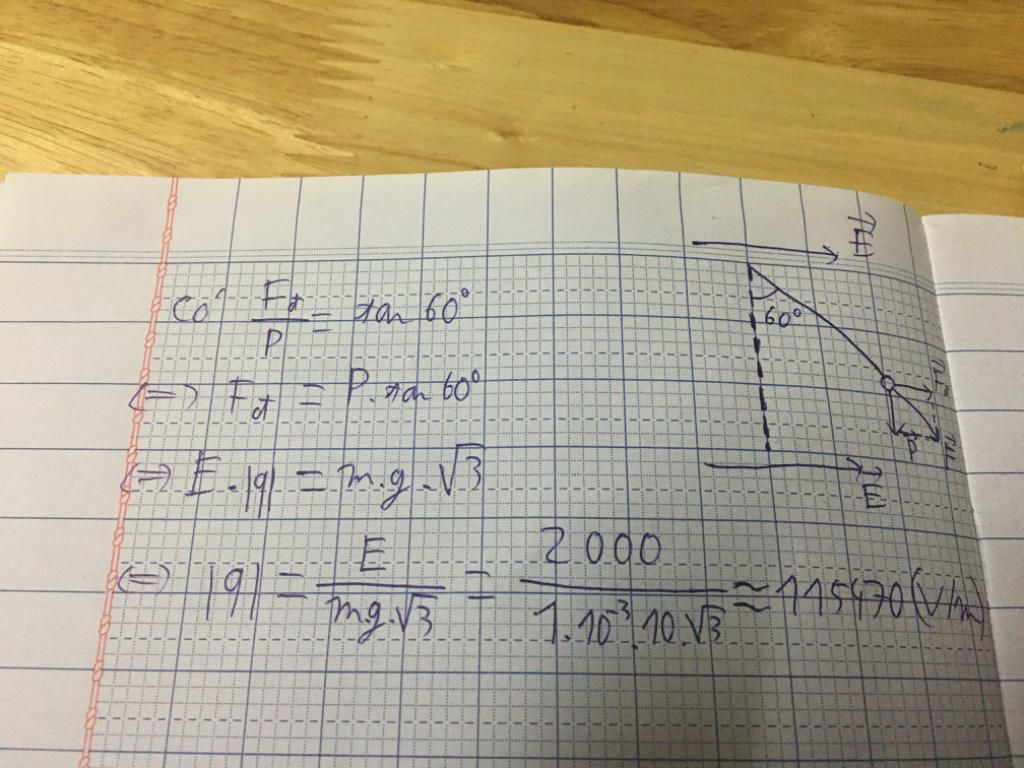 Có Fđ/P = tan 60°
(=) Fđ = P. tan 60°
(=) E.|q| = m.g.√3
(=) |q| = E/(mg.√3) = 2000/(1.10⁻³.10.√3) ≈ 115470 (V/m)
E
60°
Fđ
P
F
E